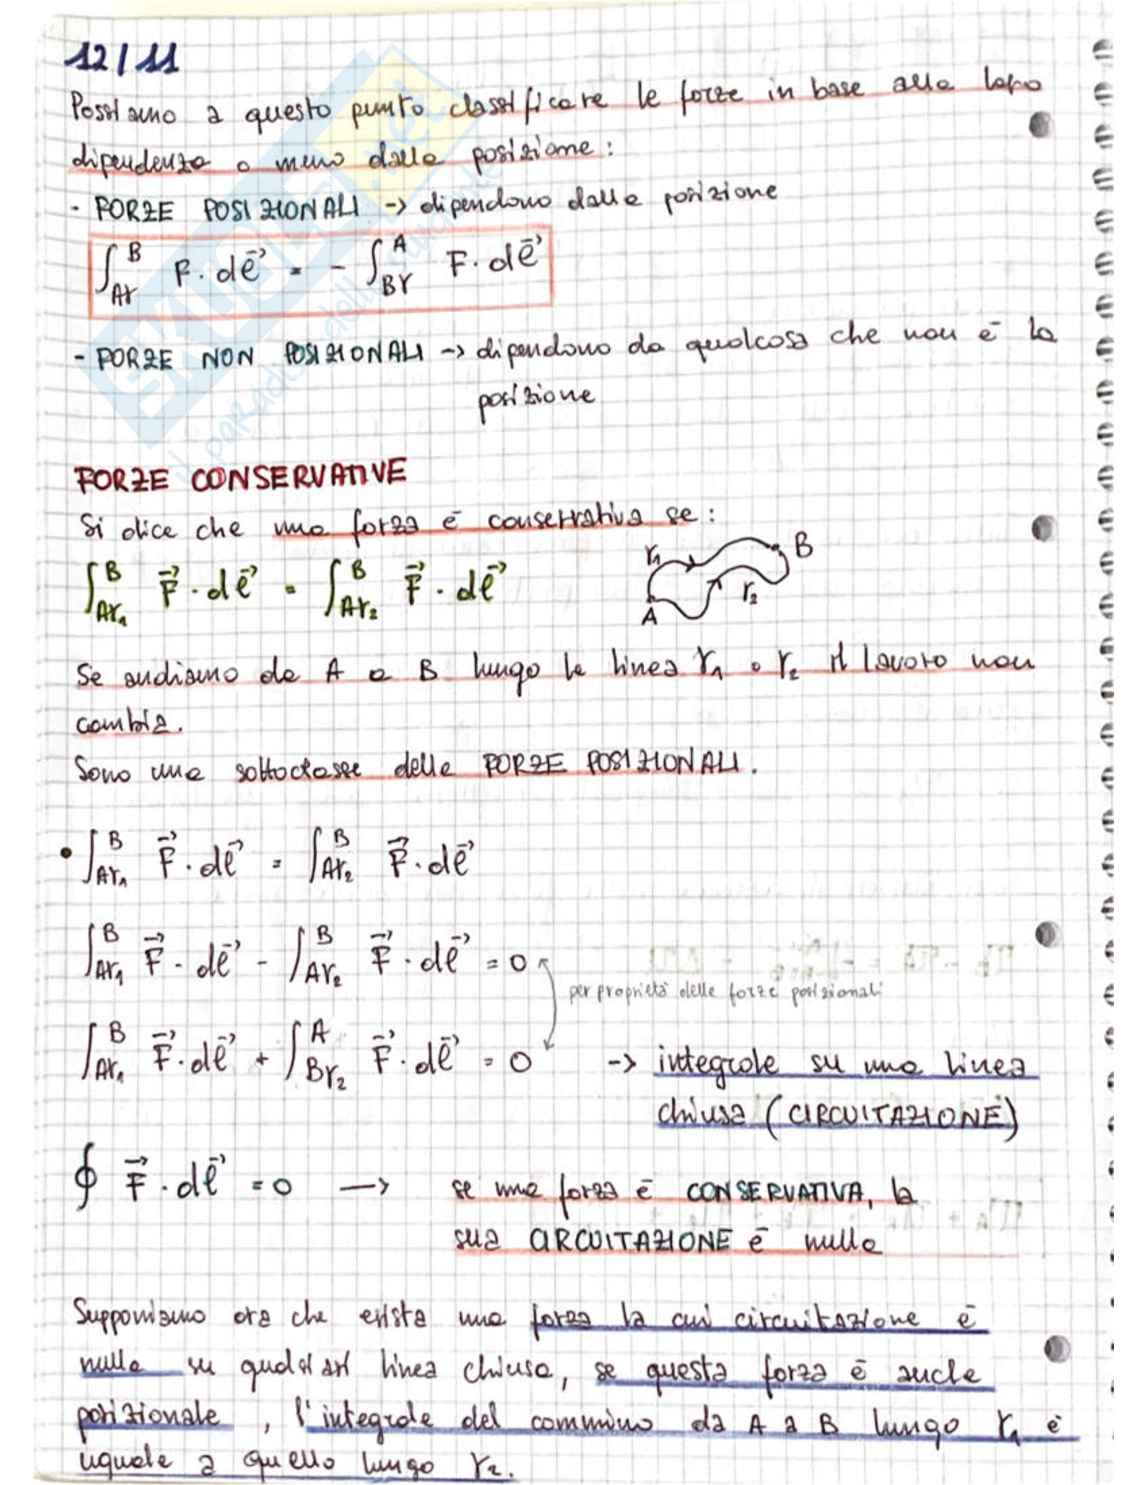 12/11
Possiamo a questo punto classificare le forze in base alla loro
dipendenza o meno dalla posizione:
- FORZE POSIZIONALI -> dipendono dalla posizione
∫_{Aγ}^{B} F · dℓ⃗ = - ∫_{Bγ}^{A} F · dℓ⃗
- FORZE NON POSIZIONALI -> dipendono da qualcosa che non è la
posizione
FORZE CONSERVATIVE
Si dice che una forza è conservativa se:
∫_{Aγ₁}^{B} F⃗ · dℓ⃗ = ∫_{Aγ₂}^{B} F⃗ · dℓ⃗
γ₁ B
A γ₂
Se andiamo da A a B lungo la linea γ₁ o γ₂ il lavoro non
cambia.
Sono una sottoclasse delle FORZE POSIZIONALI.
• ∫_{Aγ₁}^{B} F⃗ · dℓ⃗ = ∫_{Aγ₂}^{B} F⃗ · dℓ⃗
∫_{Aγ₁}^{B} F⃗ · dℓ⃗ - ∫_{Aγ₂}^{B} F⃗ · dℓ⃗ = 0
per proprietà delle forze posizionali
∫_{Aγ₁}^{B} F⃗ · dℓ⃗ + ∫_{Bγ₂}^{A} F⃗ · dℓ⃗ = 0 -> integrale su una linea
chiusa (CIRCUITAZIONE)
∮ F⃗ · dℓ⃗ = 0 —> se una forza è CONSERVATIVA, la
sua CIRCUITAZIONE è nulla
Supponiamo ora che esista una forza la cui circuitazione è
nulla su qualsiasi linea chiusa, se questa forza è anche
posizionale, l'integrale del cammino da A a B lungo γ₁ è
uguale a quello lungo γ₂.